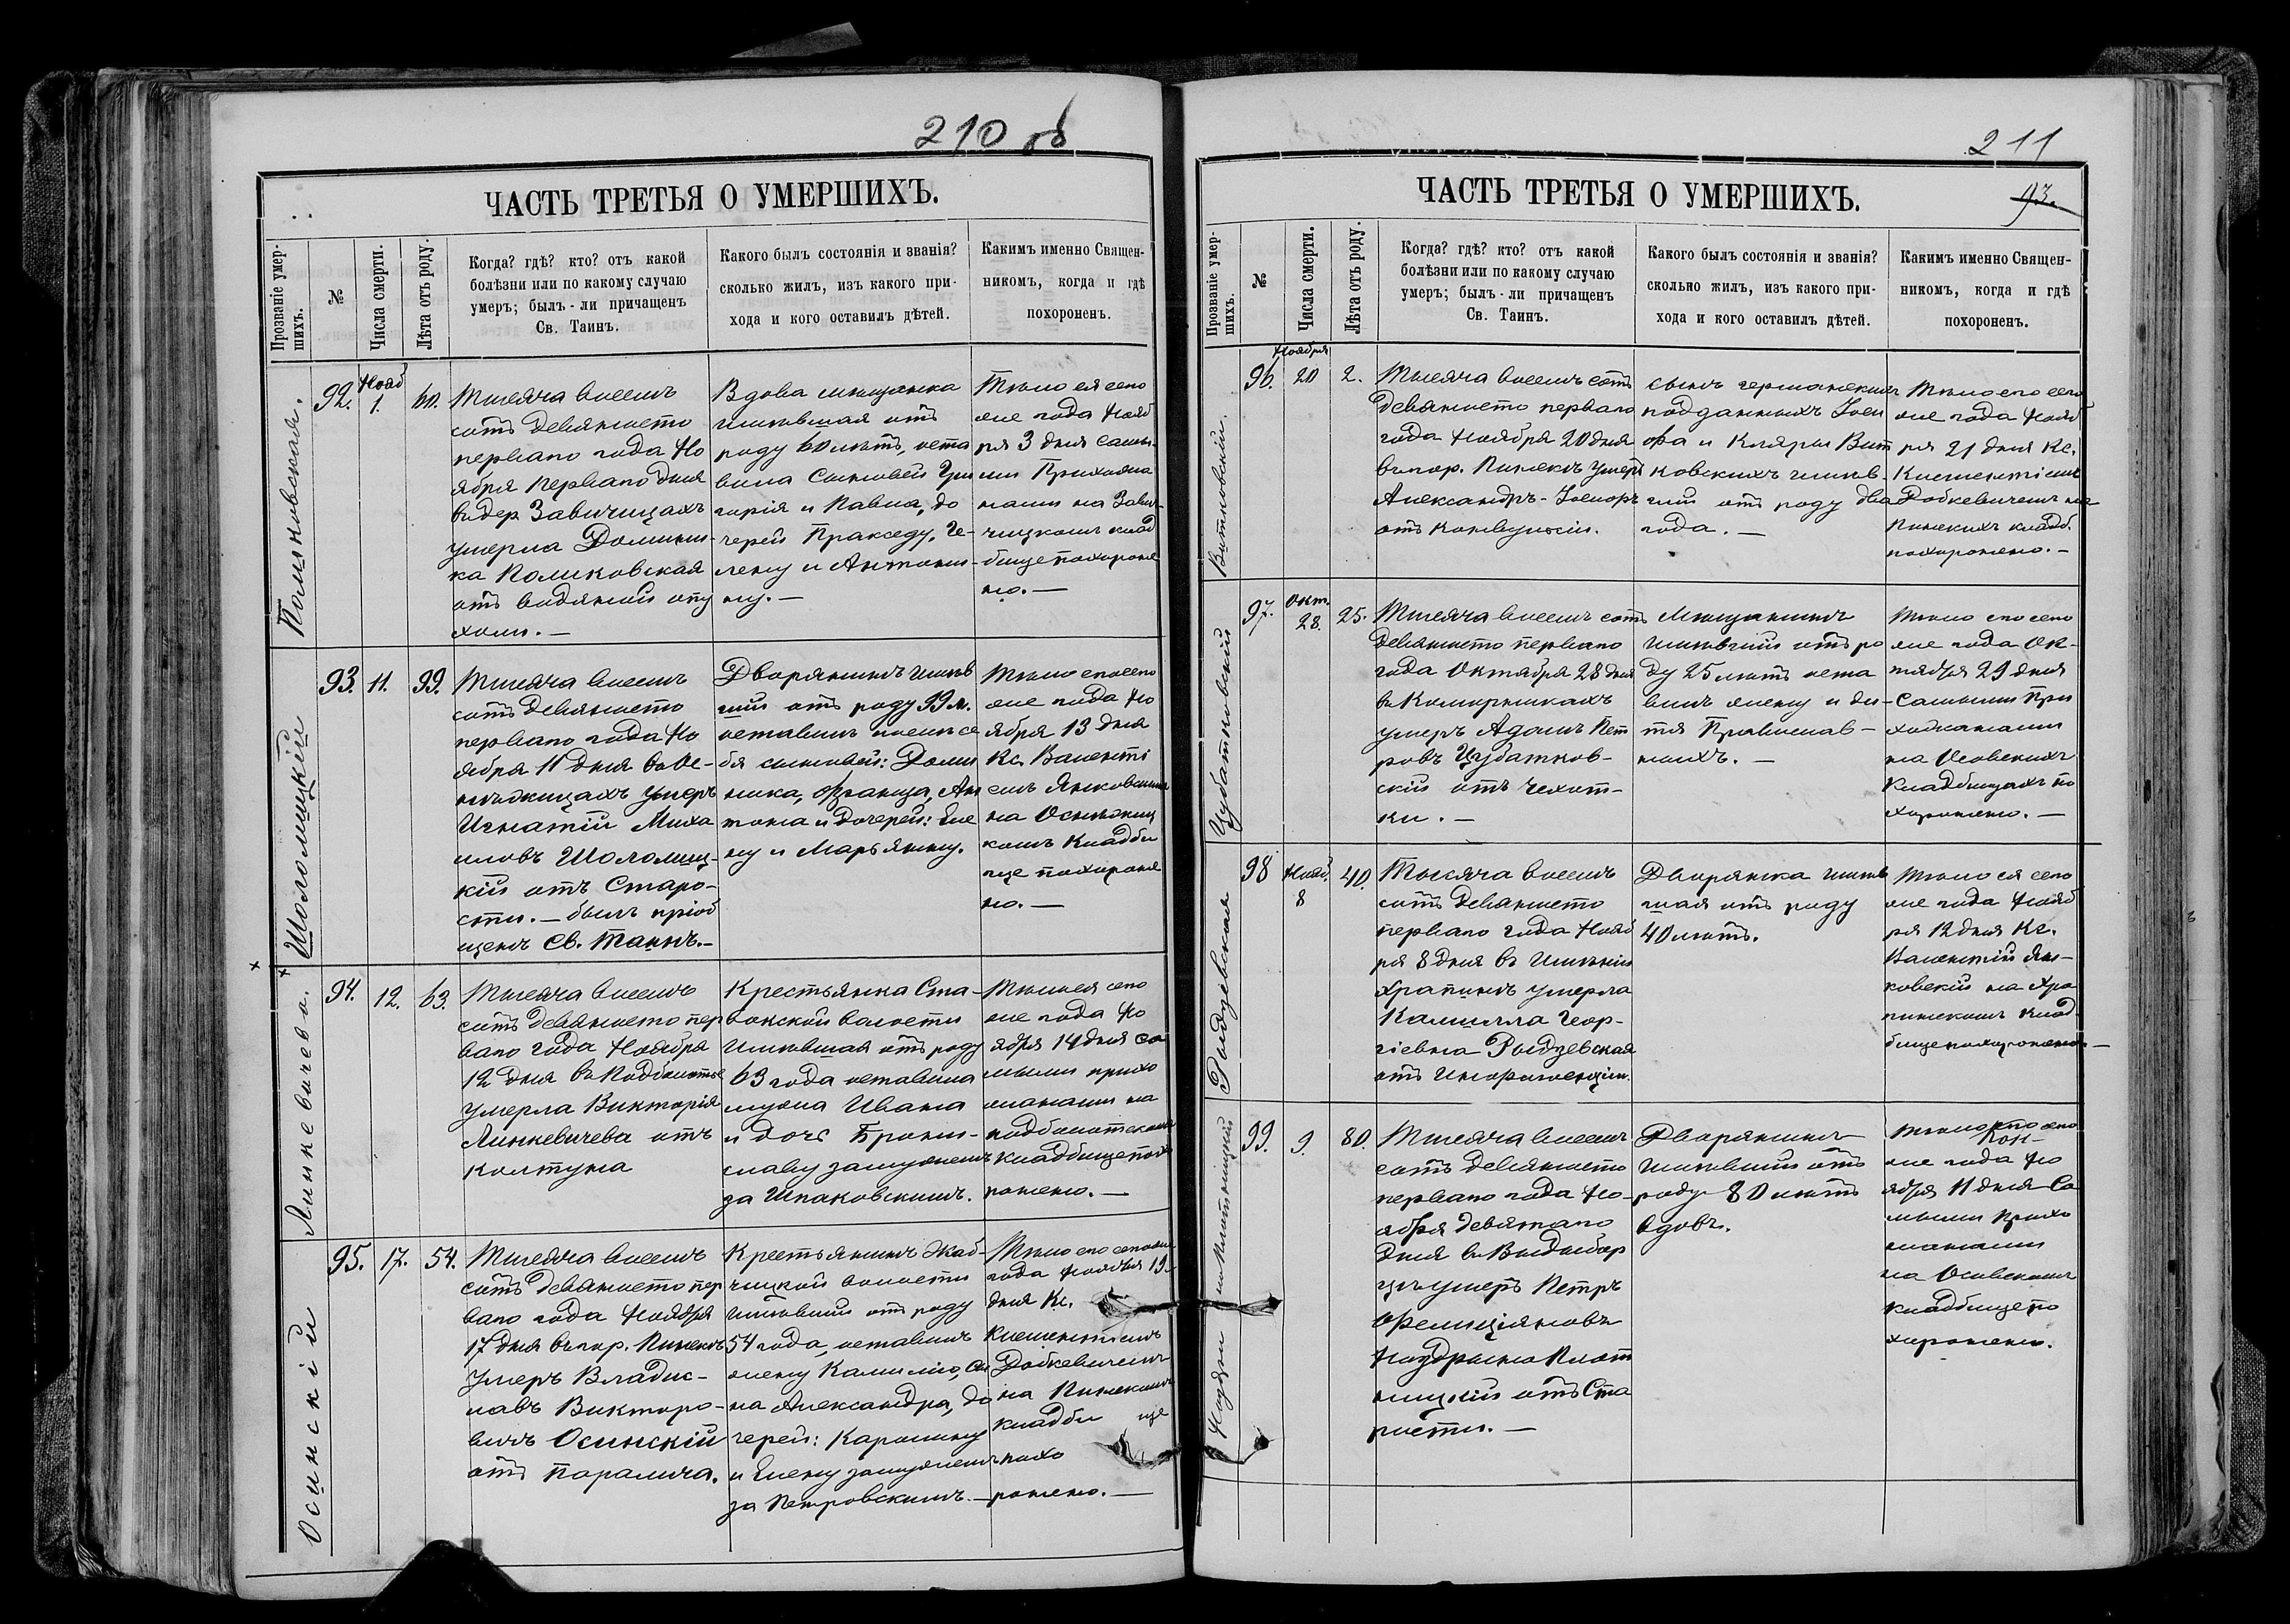 210 об
ЧАСТЬ ТРЕТЬЯ О УМЕРШИХЪ.
Прозваніе умер-
шихъ.
№
Числа смерти.
Лѣта отъ роду.
Когда? гдѣ? кто? отъ какой
болѣзни или по какому случаю
умеръ; былъ-ли причащенъ
Св. Таинъ.
Какого былъ состоянія и званія?
сколько жилъ, изъ какого при-
хода и кого оставилъ дѣтей.
Какимъ именно Священ-
никомъ, когда и гдѣ
похороненъ.
Поликовская.
92.
Нояб
1.
60.
Тысяча восемь
сотъ девяносто
перваго года Но
ября перваго дня
въ дер Завичицахъ
умерла Домини-
ка Поликовская
отъ водяной опу
холи. —
Вдова мѣщанка
жившая отъ
роду 60 лѣтъ, оста
вила сыновей Гри
горія и Павла, до
черей Пракседу, Ге-
лену и Антони-
ну. —
Тѣло ея сего
же года Нояб
ря 3 дня самы-
ми Прихожа
нами на Зави-
чицкомъ клад
бище похороне
но. —
Шоломицкій
93.
11.
99.
Тысяча восемь
сотъ девяносто
перваго года Но
ября 11 дня во Ос-
нѣжицахъ умеръ
Игнатій Миха
иловъ Шоломиц-
кій отъ Старо-
сти. — былъ пріоб
щенъ Св. Таинъ. —
Дворянинъ жив
шій отъ роду 99 л.
оставилъ послѣ се
бя сыновей: Доми
ника, Франца, Ан
тона и дочерей: Еле
ну и Марьянну.
Тѣло его сего
же года Но
ября 13 дня
Кс. Валенті
емъ Янковскимъ
на Оснѣжиц
комъ Кладби
ще похороне
но. —
Линкевичева.
94.
12.
63.
Тысяча восемь
сотъ девяносто пер
ваго года Ноября
12 дня въ Подболотье
умерла Викторія
Линкевичева отъ
колтуна
Крестьянка Ста-
вокской волости
жившая отъ роду
63 года оставила
мужа Ивана
и дочь Брони-
славу замужемъ
за Шпаковскимъ.
Тѣло ея сего
же года Но
ября 14 дня са
мыми прихо
жанами на
подболотскомъ
кладбище похо
ронено. —
Осинскій
95.
17.
54.
Тысяча восемь
сотъ девяносто пер
ваго года Ноября
17 дня въ гор. Пинскѣ
умеръ Владис-
лавъ Викторо-
вичъ Осинскій
отъ паралича.
Крестьянинъ Жаб-
чицкой волости
жившій отъ роду
54 года, оставилъ
жену Камилію, сы
на Александра, до
черей: Каролину
и Елену замужемъ
за Петровскимъ. —
Тѣло его сего же
года Ноября 19
дня Кс.
Клементіемъ
Добкевичемъ
на Пинскомъ
кладби ще
похо
ронено. —
211
93.
ЧАСТЬ ТРЕТЬЯ О УМЕРШИХЪ.
Прозваніе умер-
шихъ.
№
Числа смерти.
Лѣта отъ роду.
Когда? гдѣ? кто? отъ какой
болѣзни или по какому случаю
умеръ; былъ-ли причащенъ
Св. Таинъ.
Какого былъ состоянія и званія?
сколько жилъ, изъ какого при-
хода и кого оставилъ дѣтей.
Какимъ именно Священ-
никомъ, когда и гдѣ
похороненъ.
Витковскій.
96.
Ноября
20
2.
Тысяча восемь сотъ
девяносто перваго
года Ноября 20 дня
въ гор. Пинскѣ умеръ
Александръ-
отъ конвульсіи.
сынъ германскихъ
подданныхъ Іоси
фа и Клары Вит
ковскихъ жив-
шій отъ роду два
года. —
Тѣло его сего
же года Нояб
ря 21 дня Кс.
Клементіемъ
Добкевичемъ на
Пинскихъ кладб.
похоронено. —
Цубатковскій
97.
Окт.
28.
25.
Тысяча восемь сотъ
девяносто перваго
года Октября 28 дня
въ
умеръ Адамъ Пет
ровъ Цубатков-
скій отъ чехот-
ки. —
Мѣщанинъ
жившій отъ ро
ду 25 лѣтъ оста
вилъ жену и ди-
тя Православ-
ныхъ. —
Тѣло его сего
же года Ок-
тября 29 дня
Самыми При
хожанами
на Осовскихъ
Кладбищахъ по
хоронено. —
Рыдзевская
98
Нояб.
8
40.
Тысяча восемь
сотъ девяносто
перваго года Нояб
ря 8 дня въ Имѣніи
Храпинъ умерла
Камилла Геор-
гіевна Рыдзевская
отъ
Дворянка жив
шая отъ роду
40 лѣтъ.
Тѣло ея сего
же года Нояб
ря 12 дня Кс.
Валентій Ян-
ковскій на Хра
пинскомъ клад-
бище похоронено —
Ноздрин
99.
9.
80.
Тысяча восемь
сотъ девяносто
перваго года Но-
ября девятаго
дня въ
умеръ Петръ
Фелиціановъ
Плот
ницкій отъ Ста
рости. —
Дворянинъ
жившій отъ
роду 80 лѣтъ
вдовъ.
Тѣло его сего
же года Но
ября 11 дня Са
мыми прихо
жанами
на Осовскомъ
кладбище по
хоронено.